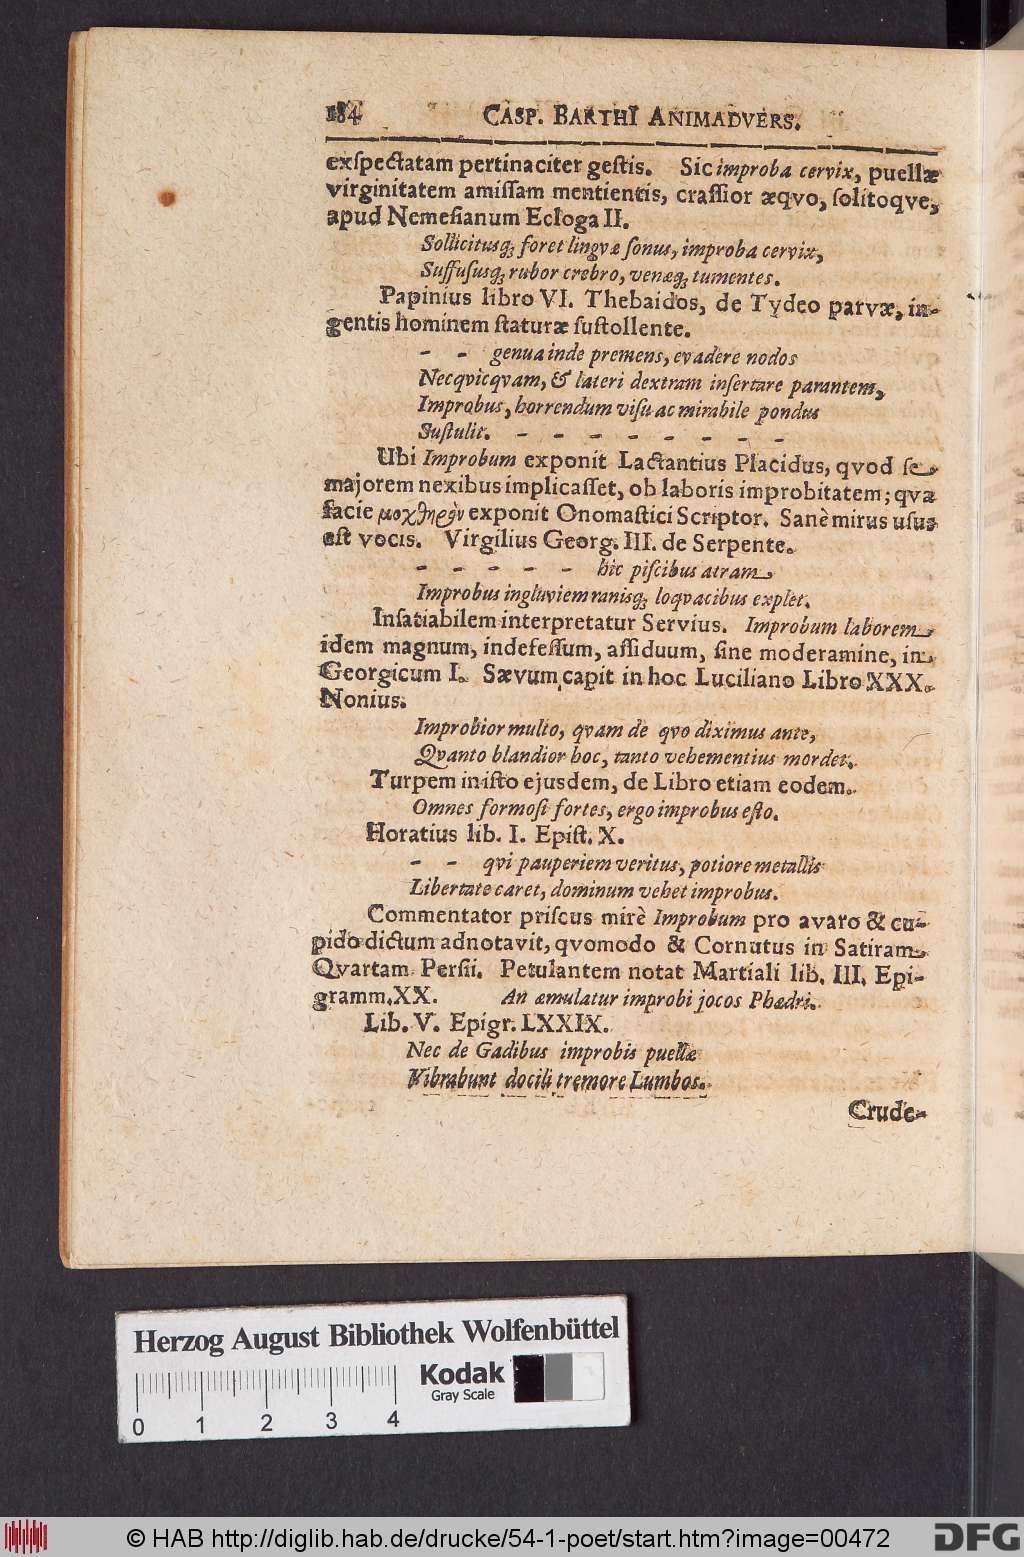 184 CASP. BARTHI ANIMADVERS.
exſpectatam pertinaciter geſtis. Sic improba cervix, puellæ
virginitatem amiſſam mentientis, craſſior æqvo, ſolitoqve,
apud Nemeſianum Ecloga II.
Sollicitusq; foret lingvæ ſonus, improba cervix,
Suffuſusq; rubor crebro, venæq; tumentes.
Papinius libro VI. Thebaidos, de Tydeo parvæ, in-
gentis hominem ſtaturæ ſuſtollente.
- - genua inde premens, evadere nodos
Necqvicqvam, & lateri dextram inſertare parantem,
Improbus, horrendum viſu ac mirabile pondus
Suſtulit. - - - - - - - -
Ubi Improbum exponit Lactantius Placidus, qvod ſe
majorem nexibus implicaſſet, ob laboris improbitatem; qva
facie μοχθηρὸν exponit Onomaſtici Scriptor. Sanè mirus uſus
eſt vocis. Virgilius Georg. III. de Serpente.
- - - - - hic piſcibus atram
Improbus ingluviem ranisq; loqvacibus explet.
Inſatiabilem interpretatur Servius. Improbum laborem
idem magnum, indefeſſum, aſſiduum, ſine moderamine, in
Georgicum I. Sævum capit in hoc Luciliano Libro XXX.
Nonius.
Improbior multo, qvam de qvo diximus ante,
Qvanto blandior hoc, tanto vehementius mordet.
Turpem in iſto ejusdem, de Libro etiam eodem.
Omnes formoſi fortes, ergo improbus eſto.
Horatius lib. I. Epiſt. X.
- - qvi pauperiem veritus, potiore metallis
Libertate caret, dominum vehet improbus.
Commentator priſcus mirè Improbum pro avaro & cu-
pido dictum adnotavit, qvomodo & Cornutus in Satiram
Qvartam Perſii. Petulantem notat Martiali lib. III. Epi-
gramm. XX. An æmulatur improbi jocos Phædri.
Lib. V. Epigr. LXXIX.
Nec de Gadibus improbis puellæ
Vibrabunt docili tremore Lumbos.
Crude-
Herzog August Bibliothek Wolfenbüttel
Kodak
Gray Scale
0 1 2 3 4
© HAB http://diglib.hab.de/drucke/54-1-poet/start.htm?image=00472
DFG